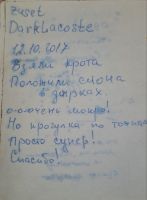 zuset
DarkLacoste
12.10.2017
Взяли крота
Положили слона
в дырках.
о-о-очень мокро!
Но прогулка по
Просто супер!
Спасибо!